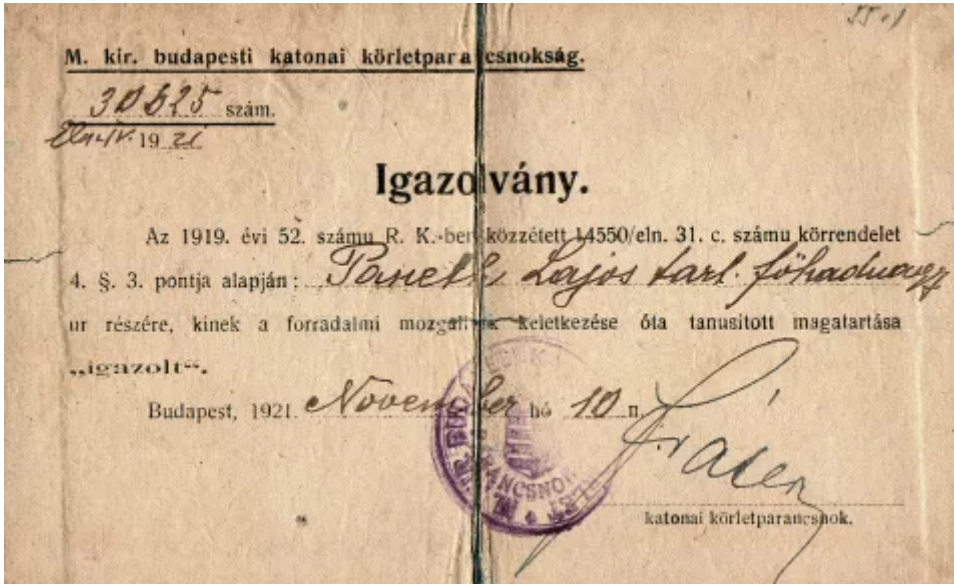 M. kir. budapesti katonai körletparancsnokság.
30625 szám.
19 21
Igazolvány.
Az 1919. évi 52. számu R. K.-ben közzétett 14550/eln. 31. c. számu körrendelet
4. §. 3. pontja alapján: Paneth Lajos tart. főhadnagy
ur részére, kinek a forradalmi mozgalmak keletkezése óta tanusitott magatartása
„igazolt“.
Budapest, 1921. November hó 10 n.
katonai körletparancsnok.